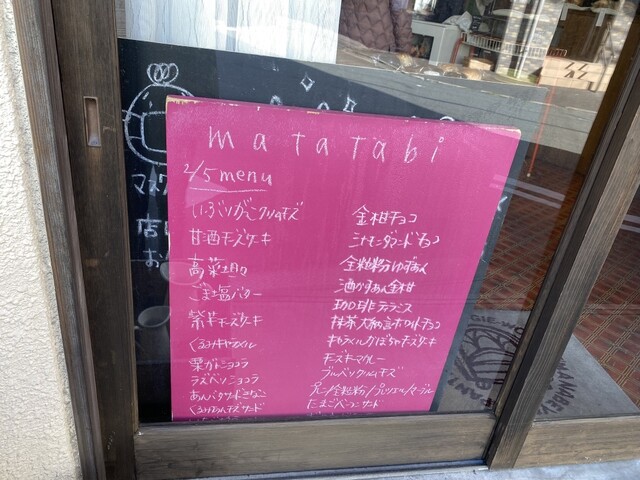 matatabi
2/5 menu
いぶりがっこクリームチーズ
甘酒チーズケーキ
高菜
ごま塩バター
紫芋チーズケーキ
くるみキャラメル
栗ガトーショコラ
ラズベリーショコラ
あんバターサンドきなこ
金柑チョコ
シナモンダマンドチョコ
全粒粉ゆずあん
酒かすあん金柑
珈琲テラミス
抹茶大納言ホワイトチョコ
キャラメルかぼちゃチーズケーキ
チーズキーマカレー
ブルーベリークリームチーズ
プレーン/全粒粉/プレッツェル/マーブル
たまごベーコンサンド
マスク
店
お